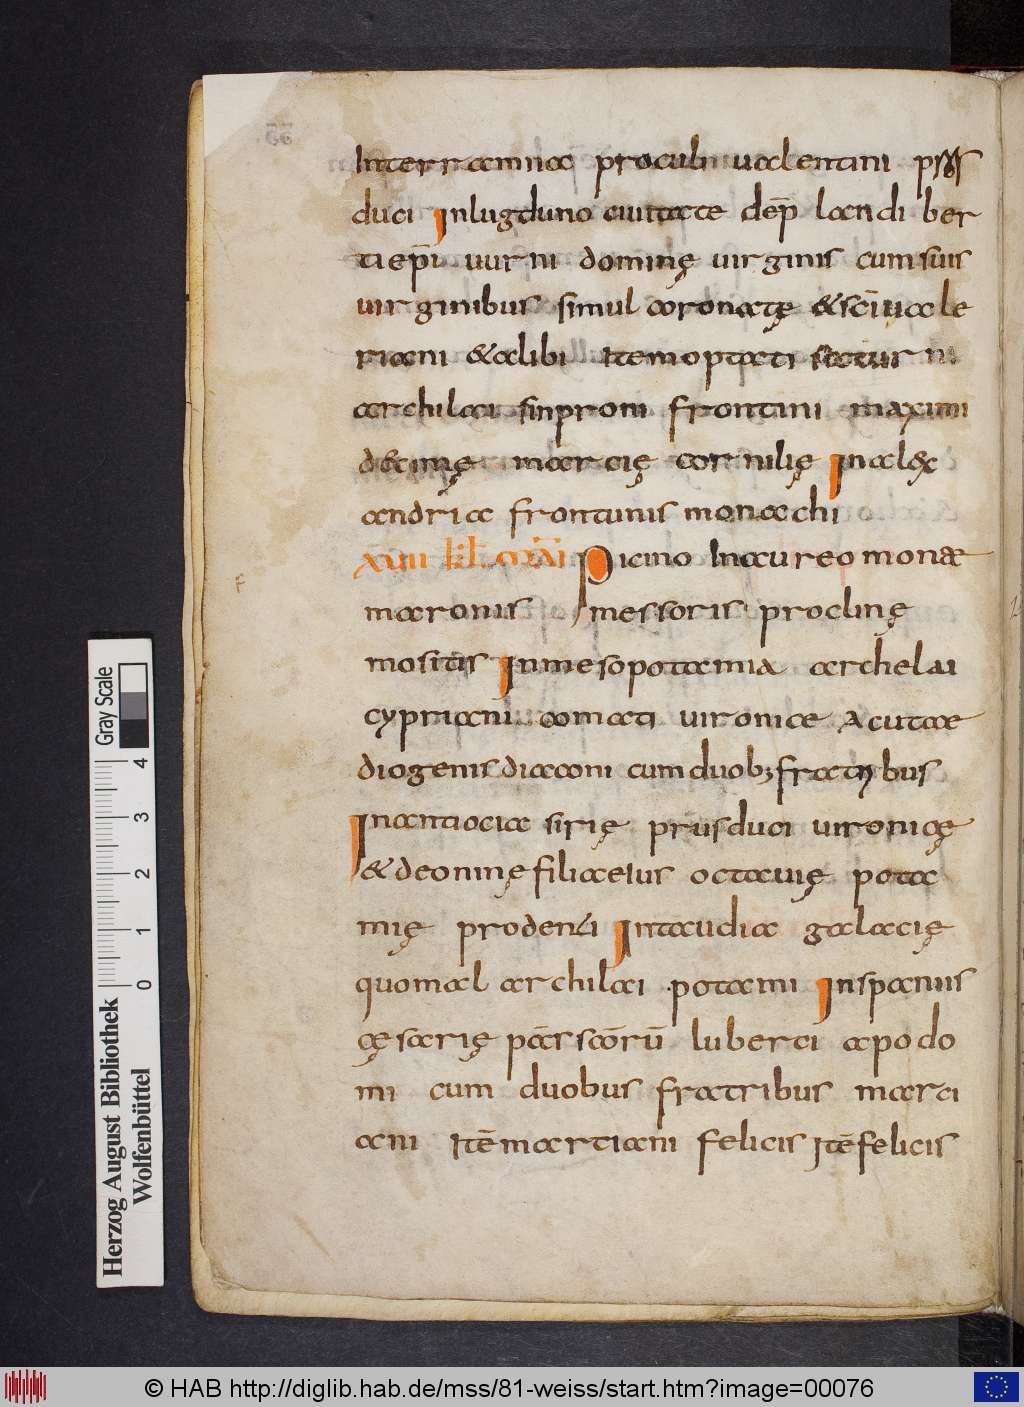 Interramnae proculi ualentini
duci Inlugduno ciuitate dep̄ landi ber
tiep̄i uurni dominę uirginis cumsuis
uirginibus simul coronatę &sc̄iuale
riani &alibi Itemoptati
archilaci sinproni frontini maximi
marcię cornilię Inalęx
andria frontunis monachi
Picino Inaureo monae
maronis messoris proclinę
mositis Inmesopotamia archelai
cypriani comati uironicae Acutae
diogenis diaconi cumduob; fratribus
Inantiocia sirię prusduci uironicę
&deoninę filiaeius octauię pota
mię prodenti Intaudia galacię
quomal archilaci potami Inspaniis
cęsarię pārscōrū luberci apodo
mi cum duobus fratribus marci
ani Itē martiani felicis Itē felicis
Gray Scale
4
3
2
1
0
Herzog August Bibliothek
Wolfenbüttel
© HAB http://diglib.hab.de/mss/81-weiss/start.htm?image=00076